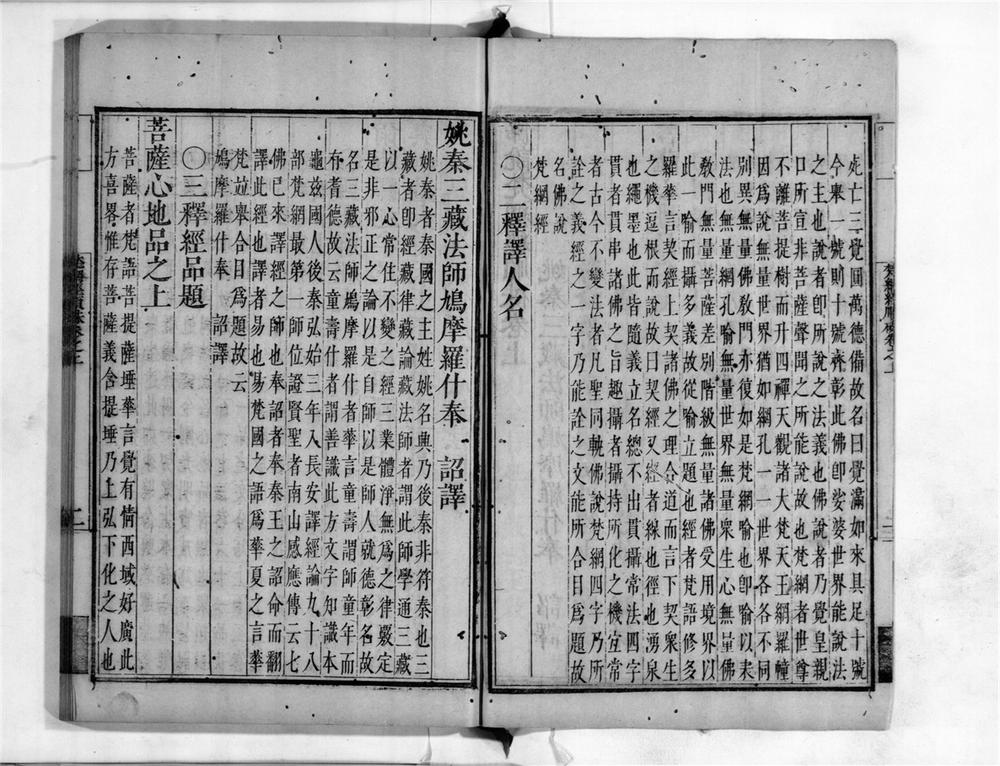 虎亡三覺圓萬德備故名曰覺滿如來具足十號
今舉一號則十號齊彰此佛卽娑婆世界能說法
之主也說者卽所說之法義也佛說者乃覺皇親
口所宣非菩薩聲聞之所能說故也梵網者世尊
不離菩提樹而升四禪天觀諸大梵天王網羅幢
因爲說無量世界猶如網孔一一世界各各不同
別異無量佛敎門亦復如是梵網喻也卽喻以表
法也無量網孔喻無量世界無量眾生心無量佛
敎門無量菩薩差別階級無量諸佛受用境界以
此一喻而攝多義故從喻立題也經者梵語修多
羅華言契經上契諸佛之理合道而言下契眾生
之機逗根而說故曰契經又經者線也徑也湧泉
也繩墨也此皆隨義立名總不出貫攝常法四字
貫者貫串諸佛之旨趣攝者攝持所化之機宜常
者古今不變法者凡聖同軌佛說梵網四字乃所
詮之義經之一字乃能詮之文能所合目爲題故
名佛說
梵網經
〇二釋譯人名
姚秦三藏法師鳩摩羅什奉 詔譯
姚秦者秦國之主姓姚名興乃後秦非符秦也三
藏者卽經藏律藏論藏法師者謂此師學通三藏
以一心常住不變之經三業體淨無爲之律覈定
是非邪正之論以是自師以是師人就德彰名故
名三藏法師鳩摩羅什者華言童壽謂師童年而
有耆德故云童壽什者謂善識此方文字知識本
龜茲國人後秦弘始三年入長安譯經論九十八
部梵網最第一師位證賢聖者南山感應傳云七
佛已來譯經之師也奉詔者奉秦王之詔命而翻
譯此經也譯者易也易梵國之語爲華夏之言華
梵竝舉合目爲題故云
鳩摩羅什奉 詔譯
〇三釋經品題
菩薩心地品之上
菩薩者梵語菩提薩埵華言覺有情西域好廣此
方喜畧惟存菩薩二字義含提埵乃上弘下化之人也